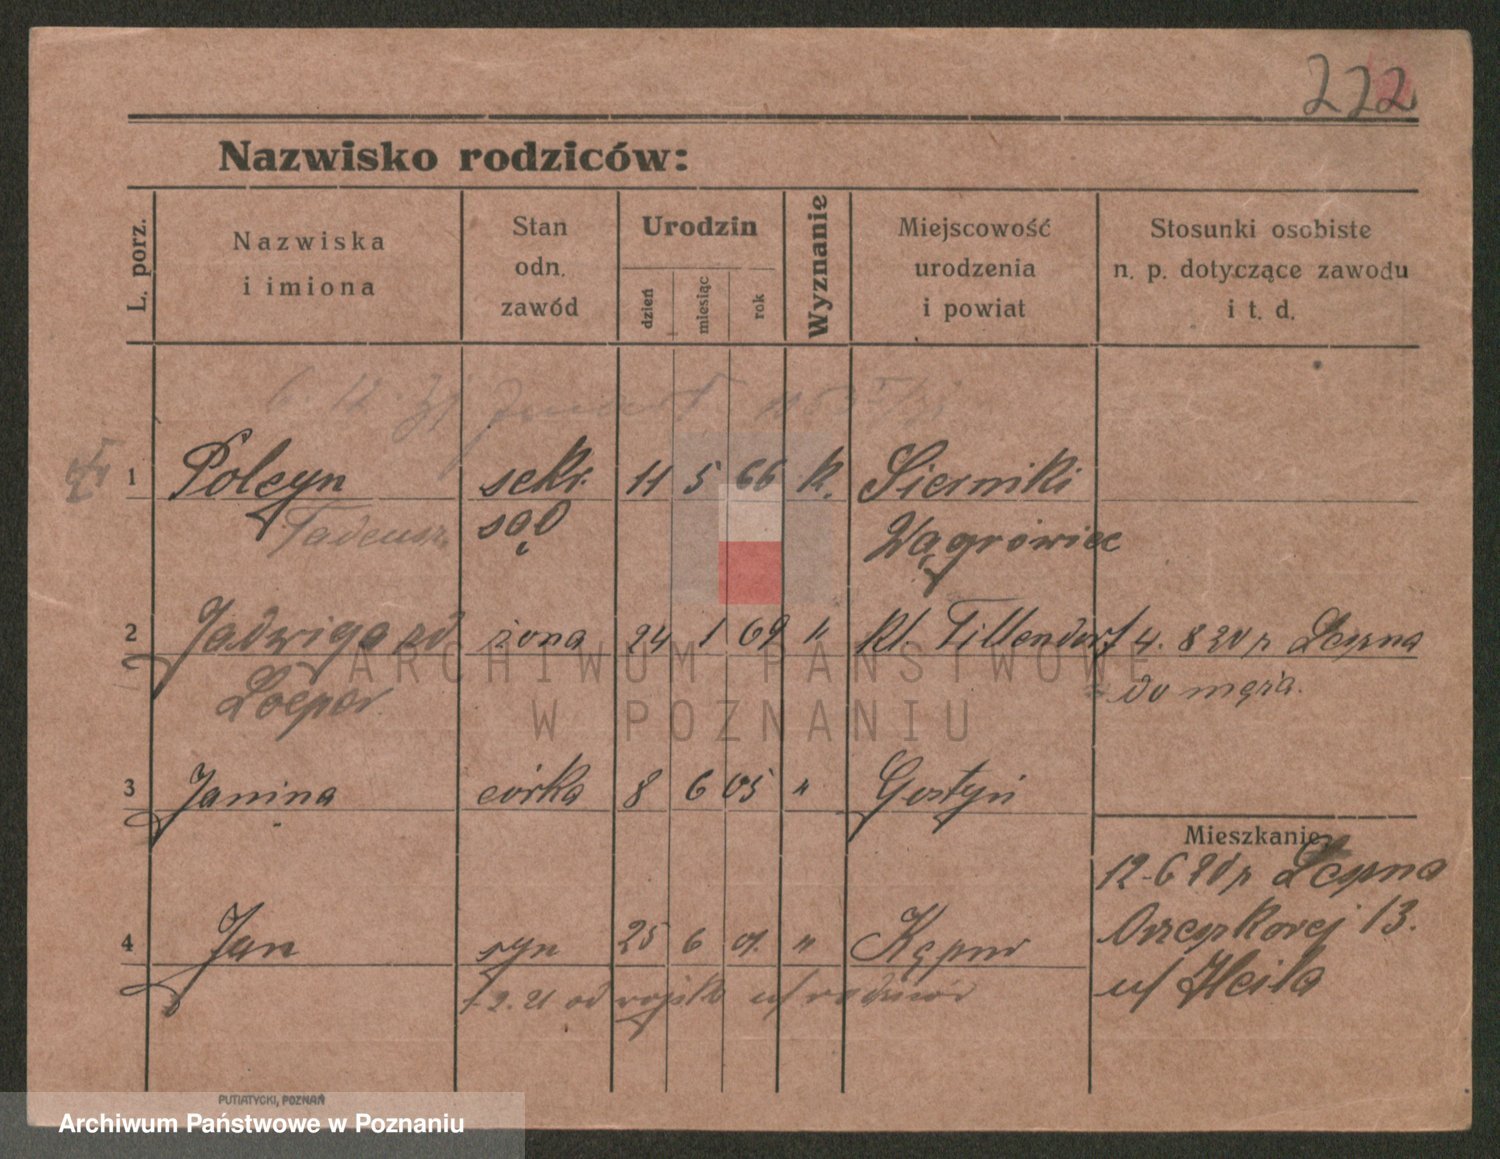 222
Nazwisko rodziców:
L. porz.
Nazwiska
i imiona
Stan
odn.
zawód
Urodzin
dzień
miesiąc
rok
Wyznanie
Miejscowość
urodzenia
i powiat
Stosunki osobiste
n. p. dotyczące zawodu
i t. d.
6. 12. 31
1 Polcyn sekr. 11 5 66 k. Sierniki
Tadeusz sąd Wągrówiec
2 Jadwiga zd żona 24 1 69 " Kl. Tillendorf 4. 8 20 p Leszna
Loeper do męża.
3 Janina córka 8 6 05 " Gostyń
Mieszkanie
12-6 20 p Leszna
Orzeszkowej 13.
4 Jan syn 25 6 01. " Kępno
u/ Heila
1-2. 21 od wojska u/ rodziców
PUTIATYCKI, POZNAŃ
ARCHIWUM PAŃSTWOWE
W POZNANIU
Archiwum Państwowe w Poznaniu